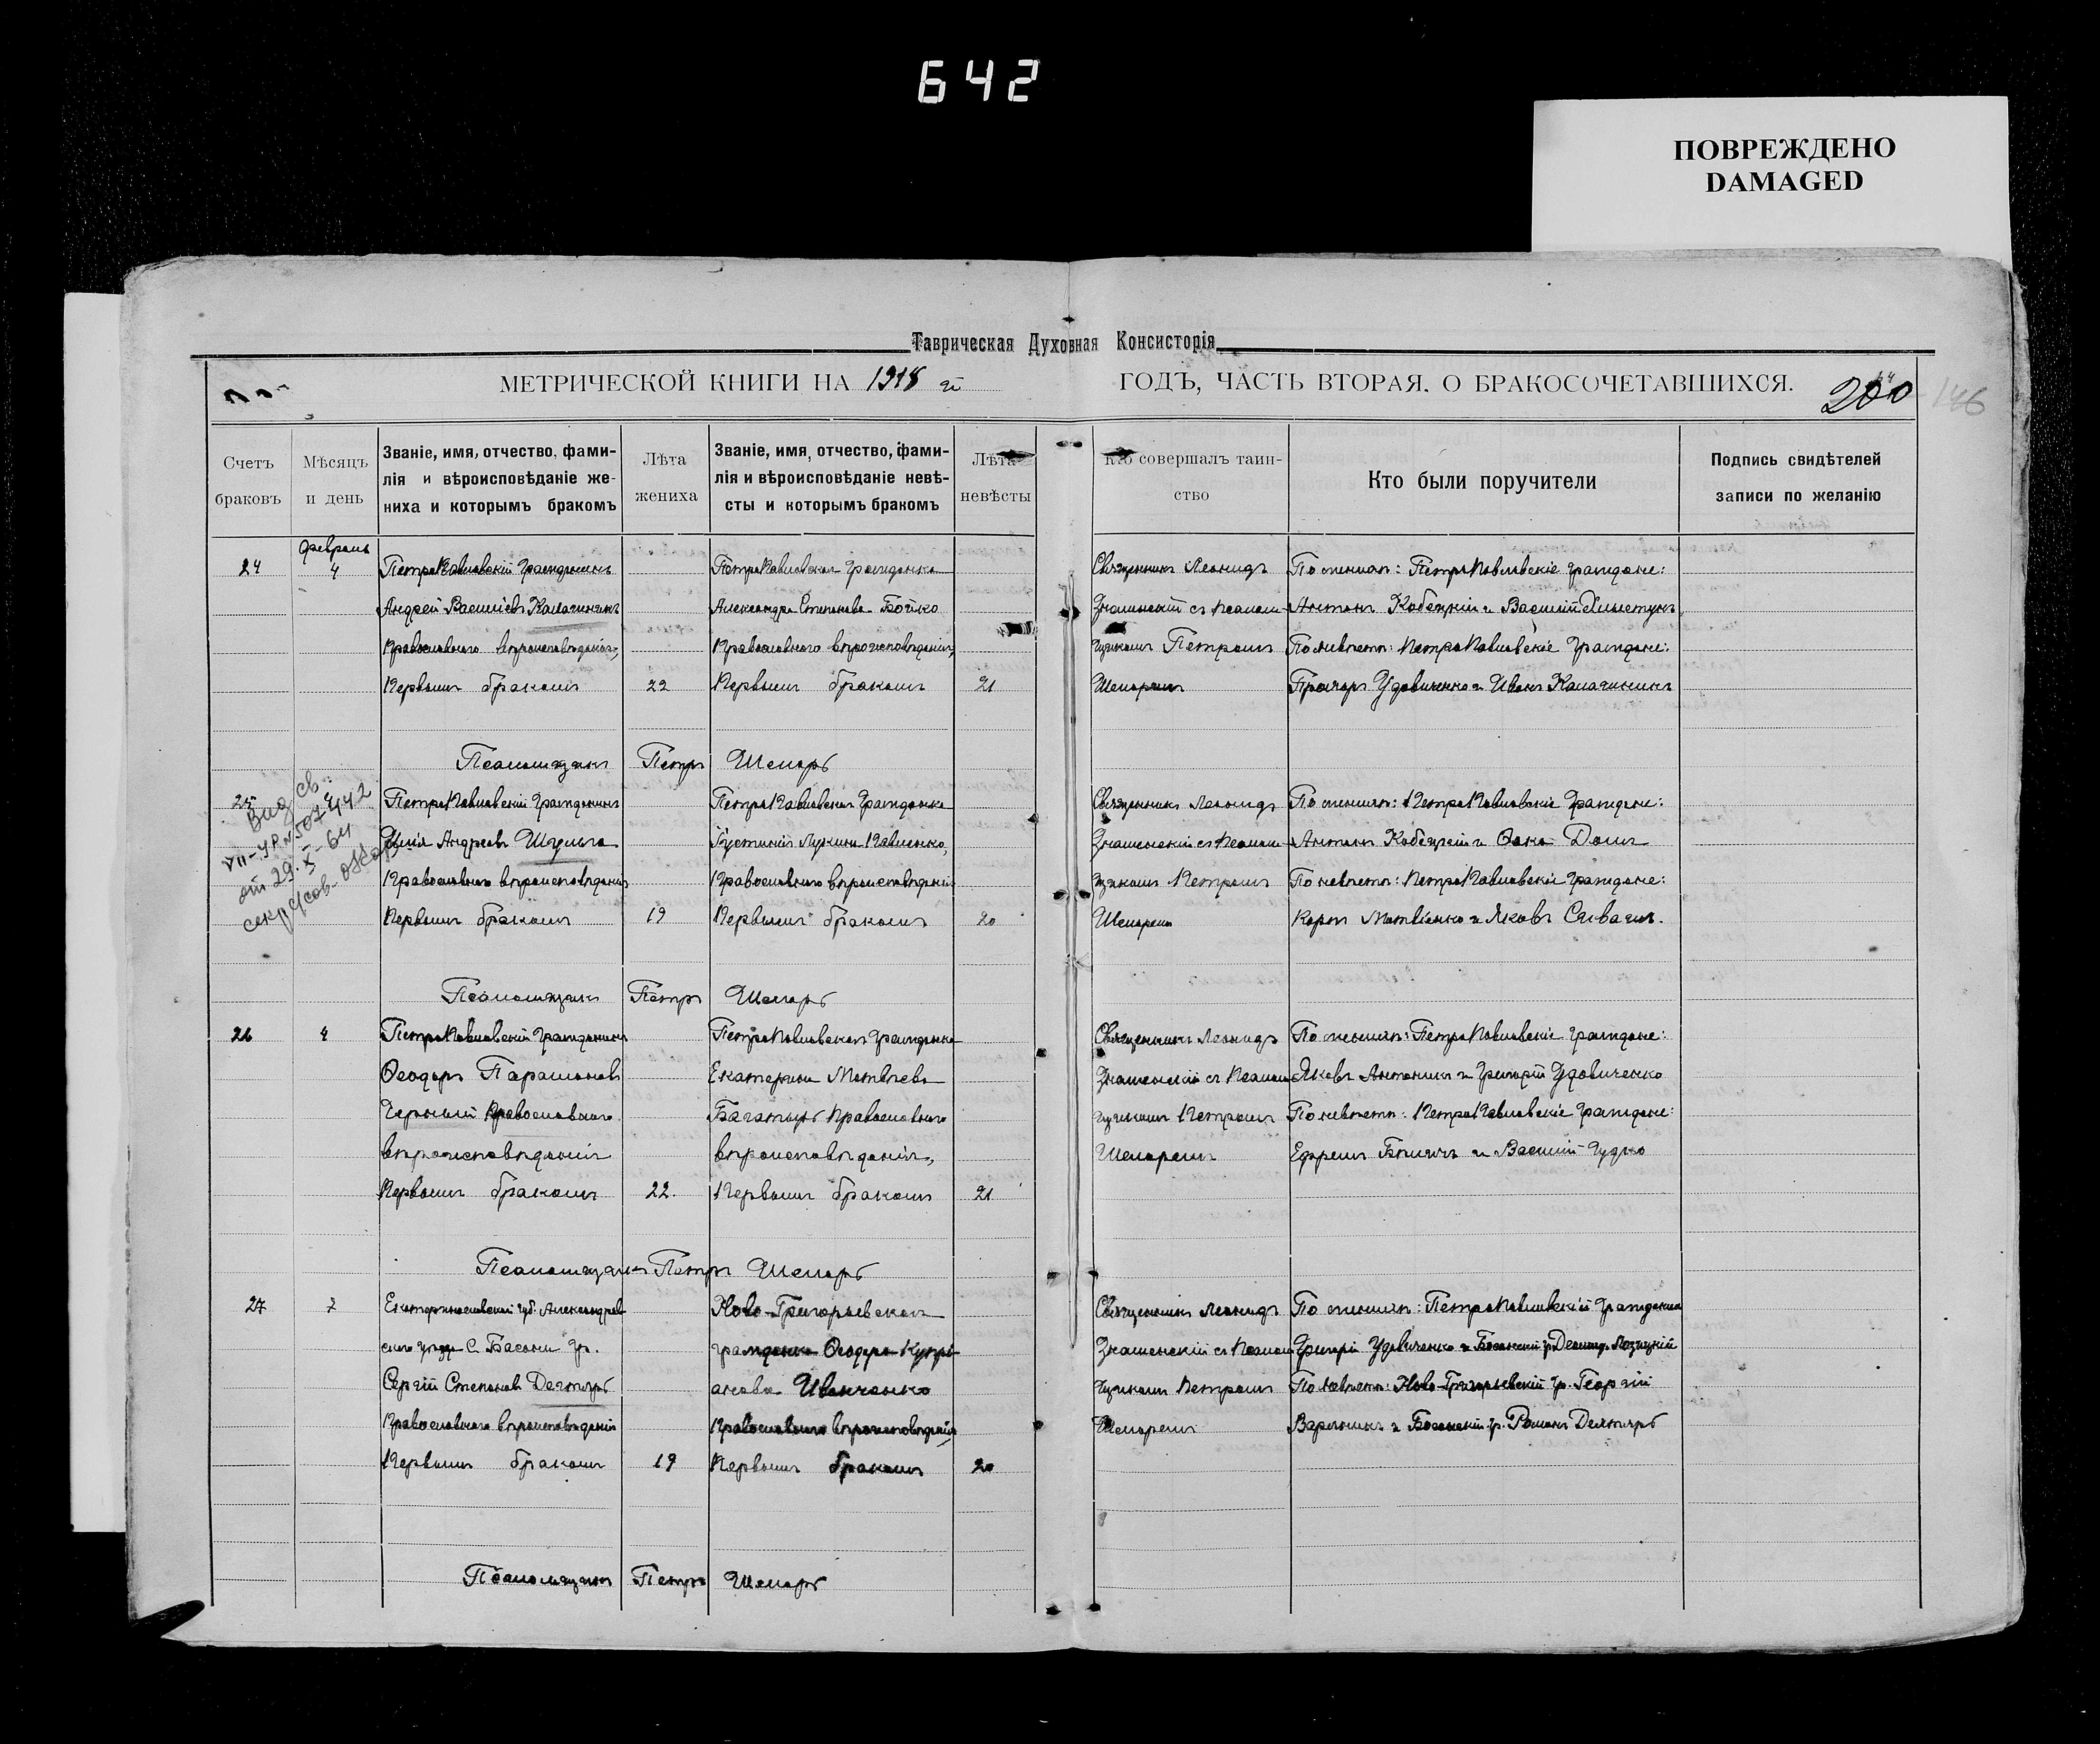 642
ПОВРЕЖДЕНО
DAMAGED
Таврическая Духовная Консисторія
МЕТРИЧЕСКОЙ КНИГИ НА 1918 й
ГОДЪ, ЧАСТЬ ВТОРАЯ. О БРАКОСОЧЕТАВШИХСЯ.
200
146
Счетъ браковъ
Мѣсяцъ и день
Званіе, имя, отчество, фами-
лія и вѣроисповѣданіе же-
ниха и которымъ бракомъ
Лѣта жениха
Званіе, имя, отчество, фами-
лія и вѣроисповѣданіе невѣ-
сты и которымъ бракомъ
Лѣта невѣсты
Кто совершалъ таин-
ство
Кто были поручители
Подпись свидѣтелей
записи по желанію
Февраль
24
4
ПетроПавловскій гражданинъ
Андрей Васильевъ Калагинъ
Православнаго вѣроисповѣданія,
Первымъ бракомъ
22
ПетроПавловская гражданка
Александра Степанова Бойко
Православнаго вѣроисповѣданія,
Первымъ бракомъ
21
Священникъ Леонидъ
Знаменскій съ Псалом-
щикомъ Петромъ
Шепаремъ
По женихѣ: ПетроПавловскіе граждане:
Антонъ Кобецкій и Василій Хлыстунъ
По невѣстѣ: ПетроПавловскіе граждане:
Удовиченко и Иванъ
Псаломщикъ Петръ Шепарь
25
4
ПетроПавловскій гражданинъ
Илія Андреевъ Шульга
Православнаго вѣроисповѣданія
Первымъ бракомъ
19
ПетроПавловская гражданка
Іустинія Лукина Павленко,
Православнаго вѣроисповѣданія
Первымъ бракомъ
20
Священникъ Леонидъ
Знаменскій съ Псалом-
щикомъ Петромъ
Шепаремъ
По женихѣ: ПетроПавловскіе граждане:
Антонъ Кобецкій и
По невѣстѣ: ПетроПавловскіе граждане:
Карпъ Матвіенко и Яковъ Сивачъ.
Выд. св.
от 29.X-64
Псаломщикъ Петръ Шепарь
26
4
ПетроПавловскій гражданинъ
Ѳеодоръ Парамоновъ
Черный Православнаго
вѣроисповѣданія
Первымъ бракомъ
22.
ПетроПавловская гражданка
Екатерина Матвѣева
Багатырь Православнаго
вѣроисповѣданія,
Первымъ бракомъ
21
Священникъ Леонидъ
Знаменскій съ Псалом-
щикомъ Петромъ
Шепаремъ
По женихѣ: ПетроПавловскіе граждане:
Яковъ Антоникъ и Григорій Удовиченко
По невѣстѣ: ПетроПавловскіе граждане:
Ефремъ и Василій Чудко
Псаломщикъ Петръ Шепарь
27
7
Екатеринославской губ. Александров-
скаго уѣзда С. Басани гр.
Сергій Степановъ Дегтярь
Православнаго вѣроисповѣданія
Первымъ бракомъ
19
Ново-Григорьевская
гражданка Ѳеодора Купрі-
анова Иванченко
Православнаго вѣроисповѣданія
Первымъ бракомъ
20
Священникъ Леонидъ
Знаменскій съ Псалом-
щикомъ Петромъ
Шепаремъ
По женихѣ: ПетроПавловскій гражданинъ
Григорій Удовиченко и Басанскій гр.
По невѣстѣ: Ново-Григорьевскій гр. Георгій
и Басанскій гр. Романъ Дегтярь
Псаломщикъ Петръ Шепарь